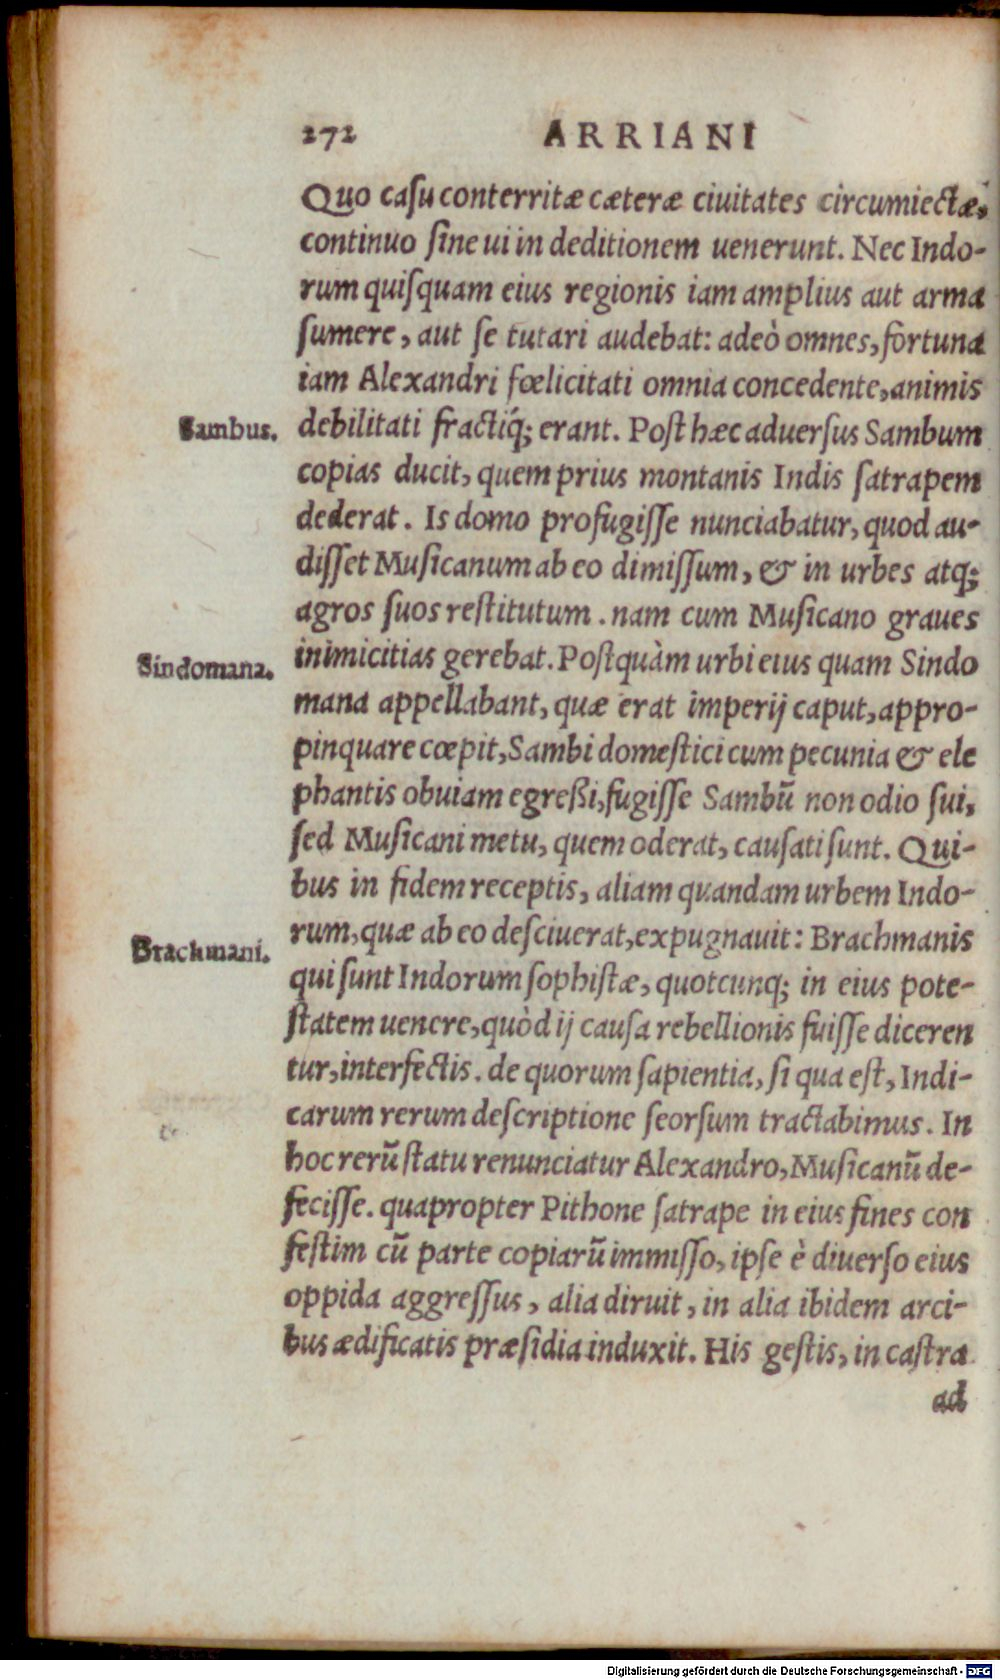 272 ARRIANI
Quo casu conterritæ cæteræ ciuitates circumiectæ,
continuo sine ui in deditionem uenerunt. Nec Indo-
rum quisquam eius regionis iam amplius aut arma
sumere, aut se tutari audebat: adeò omnes, fortuna
iam Alexandri fœlicitati omnia concedente, animis
Sambus. debilitati fractiq́; erant. Post hæc aduersus Sambum
copias ducit, quem prius montanis Indis satrapem
dederat. Is domo profugisse nunciabatur, quod au-
disset Musicanum ab eo dimissum, & in urbes atq;
agros suos restitutum. nam cum Musicano graues
inimicitias gerebat. Postquàm urbi eius quam Sindo
Sindomana. mana appellabant, quæ erat imperij caput, appro-
pinquare cœpit, Sambi domestici cum pecunia & ele
phantis obuiam egreßi, fugisse Sambū non odio sui,
sed Musicani metu, quem oderat, causati sunt. Qui-
bus in fidem receptis, aliam quandam urbem Indo-
rum, quæ ab eo desciuerat, expugnauit: Brachmanis
Brachmani. qui sunt Indorum sophistæ, quotcunq; in eius pote-
statem uenere, quòd ij causa rebellionis fuisse diceren
tur, interfectis. de quorum sapientia, si qua est, Indi-
carum rerum descriptione seorsum tractabimus. In
hoc rerū statu renunciatur Alexandro, Musicanū de-
fecisse. quapropter Pithone satrape in eius fines con
festim cū parte copiarū immisso, ipse è diuerso eius
oppida aggressus, alia diruit, in alia ibidem arci-
bus ædificatis præsidia induxit. His gestis, in castra
ad
Digitalisierung gefördert durch die Deutsche Forschungsgemeinschaft - DFG